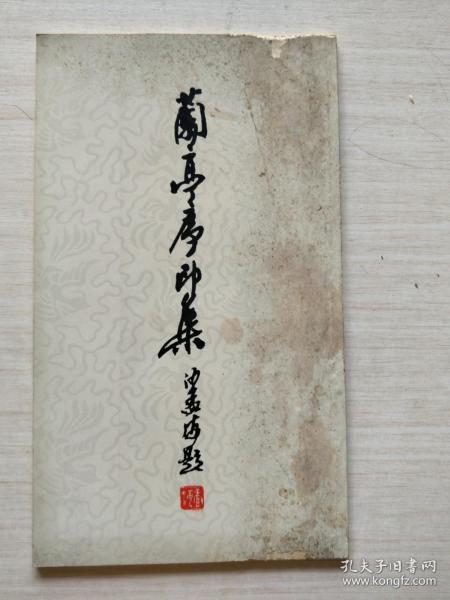 蘭亭序印集
沙孟海題
孔夫子旧书网
www.kongfz.com